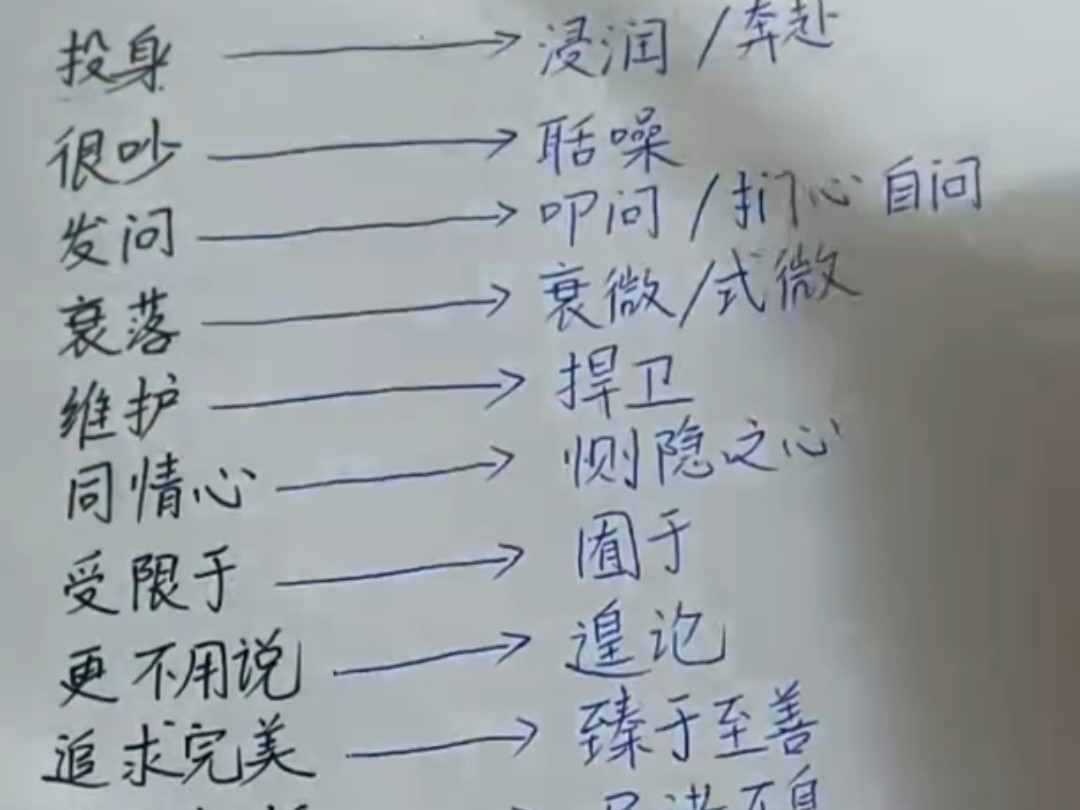 投身 → 浸润/奔赴
很吵 → 聒噪
发问 → 叩问/扪心自问
衰落 → 衰微/式微
维护 → 捍卫
同情心 → 恻隐之心
受限于 → 囿于
更不用说 → 遑论
追求完美 → 臻于至善